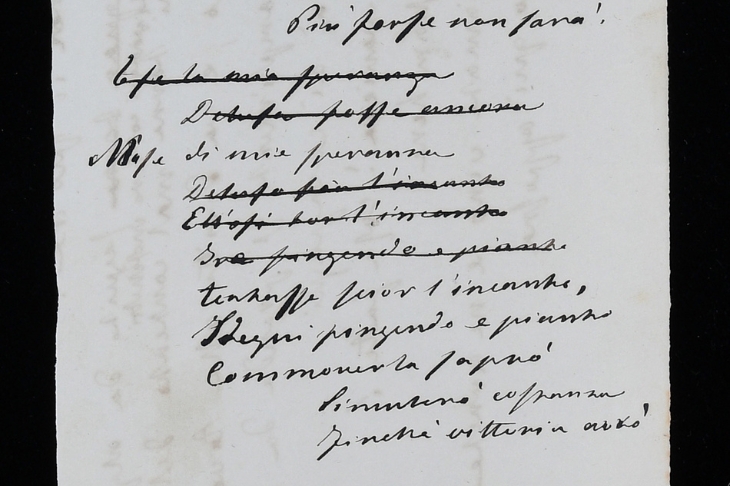 Più forse non sarà!
E se la mia speranza
Delusa fosse ancora
Ma se di mie speranza
Deluso fia l'incanto
Ell'osi tor l'incanto
Ire pingendo e pianto
Tentasse scior l'incanto,
Sdegni pingendo e pianto
Commoverla saprò
Simulerò costanza
Finchè vittoria avrò